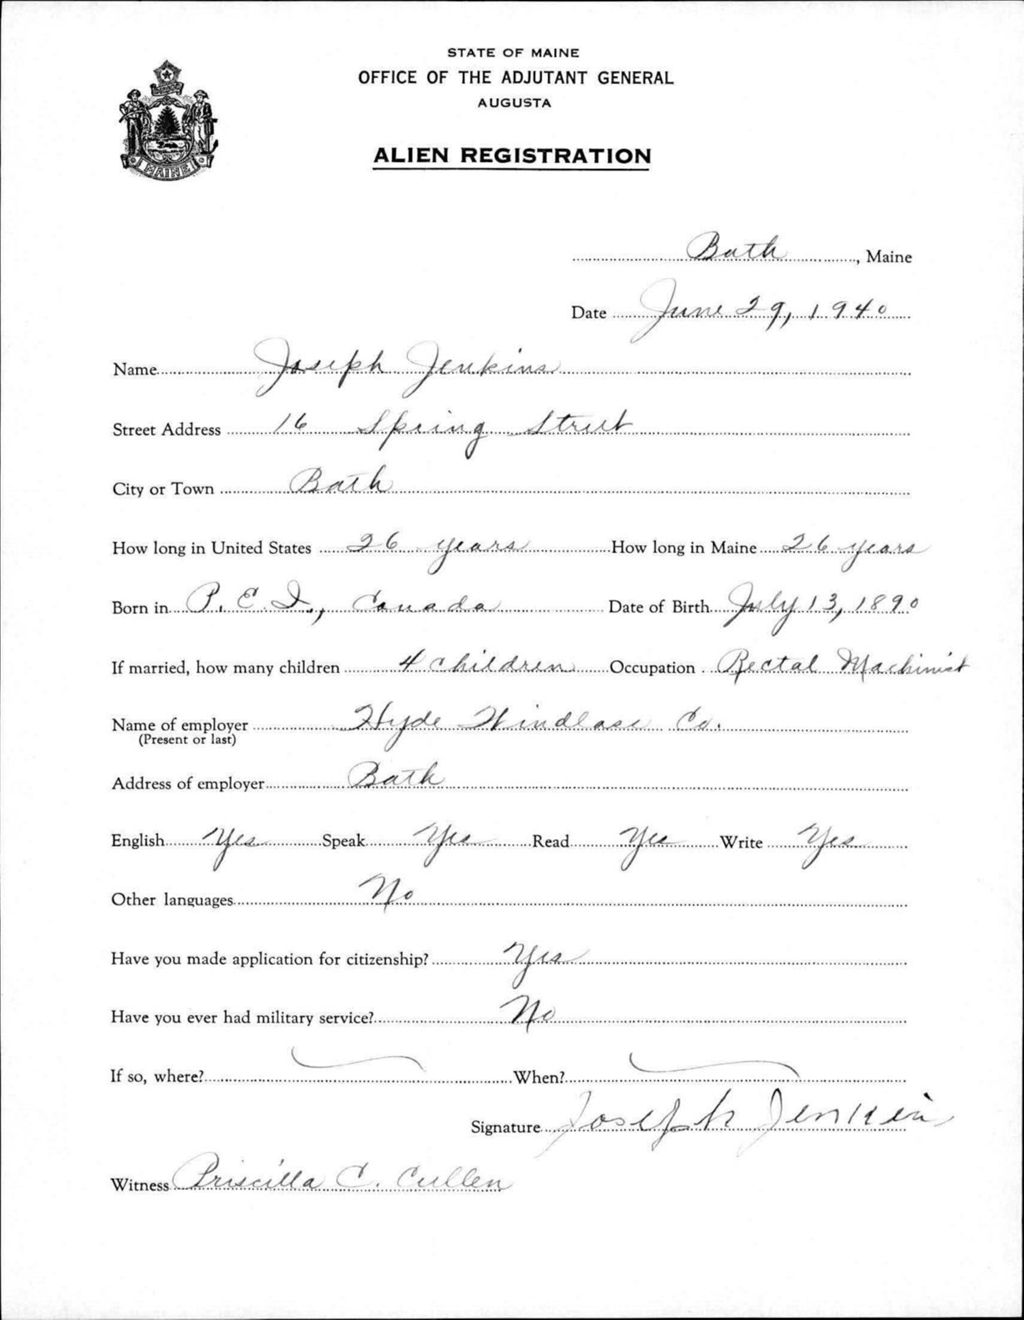 STATE OF MAINE
OFFICE OF THE ADJUTANT GENERAL
AUGUSTA
ALIEN REGISTRATION
MAINE
Bath, Maine
Date June 29, 1940
Name Joseph Jenkins
Street Address 16 Spring Street
City or Town Bath
How long in United States 26 years How long in Maine 26 years
Born in P. E. I., Canada Date of Birth July 13, 1890
If married, how many children 4 children Occupation Machinist
Name of employer Hyde Windlass Co.
(Present or last)
Address of employer Bath
English Yes Speak Yes Read Yes Write Yes
Other languages No
Have you made application for citizenship? Yes
Have you ever had military service? No
If so, where? When?
Signature Joseph Jenkins
Witness Priscilla C. Cullen